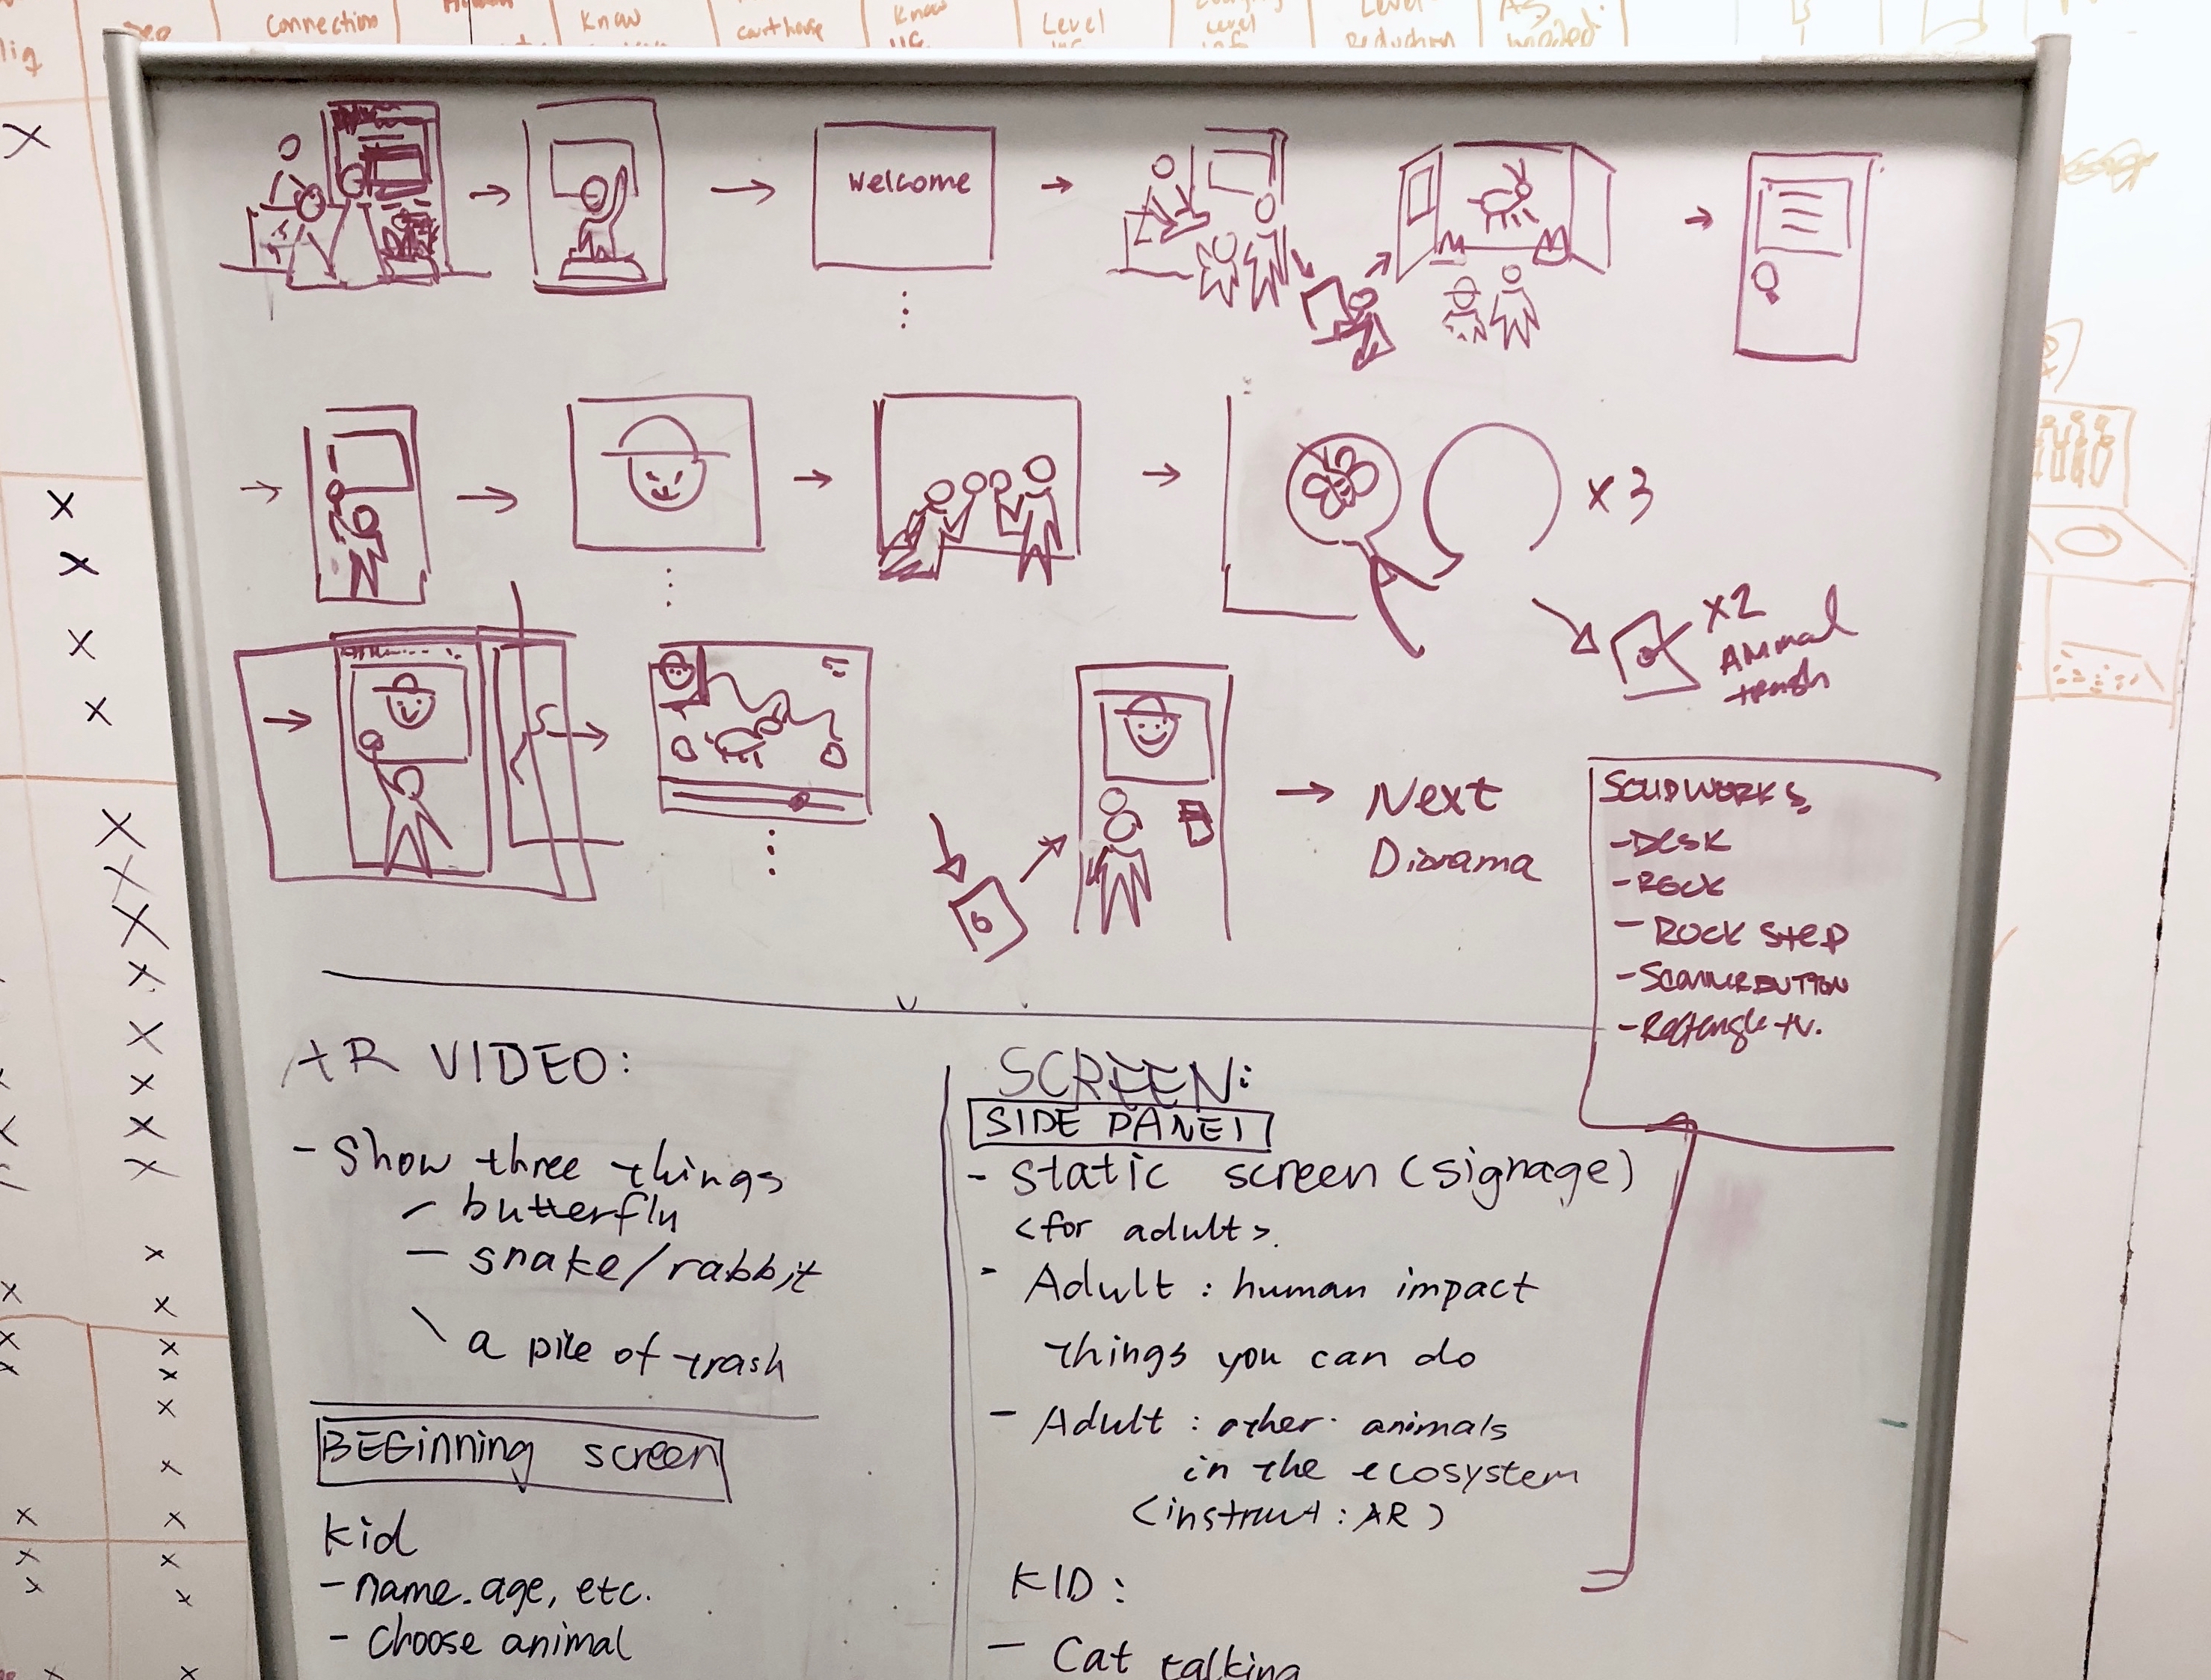 Connection
Know
courthouse
Know
Level
Level
Level
Reduction
welcome
x3
x2
Animal
trash
Next
Diorama
SOLIDWORKS
- DESK
- ROCK
- ROCK STEP
- SCANNER BUTTON
- Rectangle tv.
AR VIDEO:
- Show three things
- butterfly
- snake/rabbit
\ a pile of trash
BEGinning screen
Kid
- name. age, etc.
- Choose animal
SCREEN:
SIDE PANEL
- static screen (signage)
<for adult>.
- Adult : human impact
things you can do
- Adult : other animals
in the ecosystem
(instruct : AR)
KID :
- Cat talking